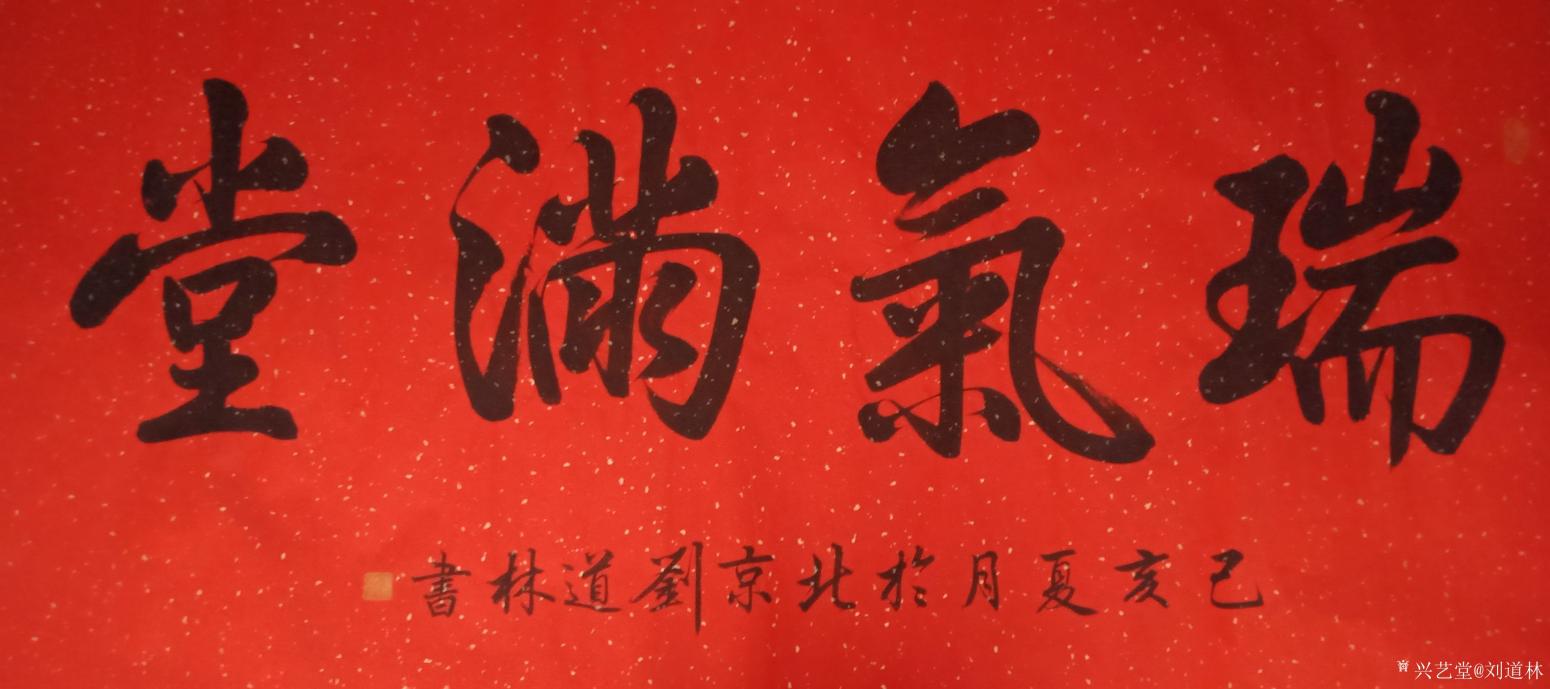 瑞氣滿堂
己亥夏月於北京劉道林書
兴艺堂@刘道林